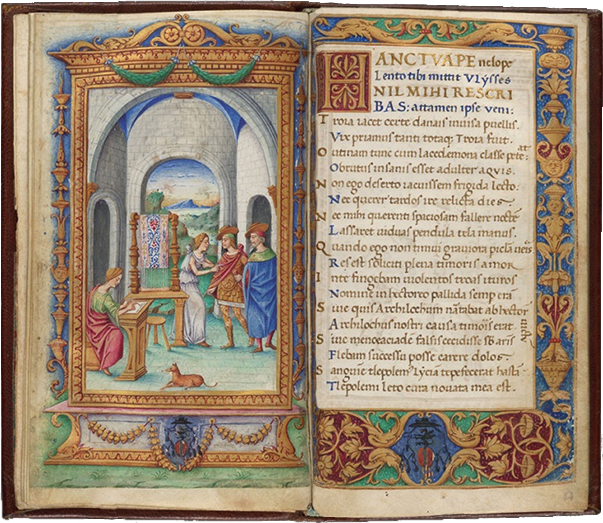 HANC TVA PEnelope
Lento tibi mittit Vlysses
NIL MIHI RESCRI
BAS: attamen ipse veni:
Troia iacet certe danais inuisa puellis.
Vix priamus tanti totaq; Troia fuit.
O utinam tunc cum lacedemona classe pete
at
Obrutus insanis esset adulter aquis.
Non ego deserto iacuissem frigida lecto.
Nec querer tardos ire relicta dies.
Nec mihi querenti spaciosam fallere nocte
Lassaret uiduas pendula tela manus.
Quando ego non timui grauiora picla ueris
Res est soliciti plena timoris amor
In te fingebam uiolentos troas ituros
Nomine in hectoreo pallida semp era
Siue quis Archilochum narrabat ab hectore
Archilochus nostri causa timoris erat.
Siue menoeciade falsis cecidisse sb armis
Flebam successu posse carere dolos.
Sanguine tlepolem Lyciam tepefecerat hasta
Tlepolemi leto cura nouata mea est.